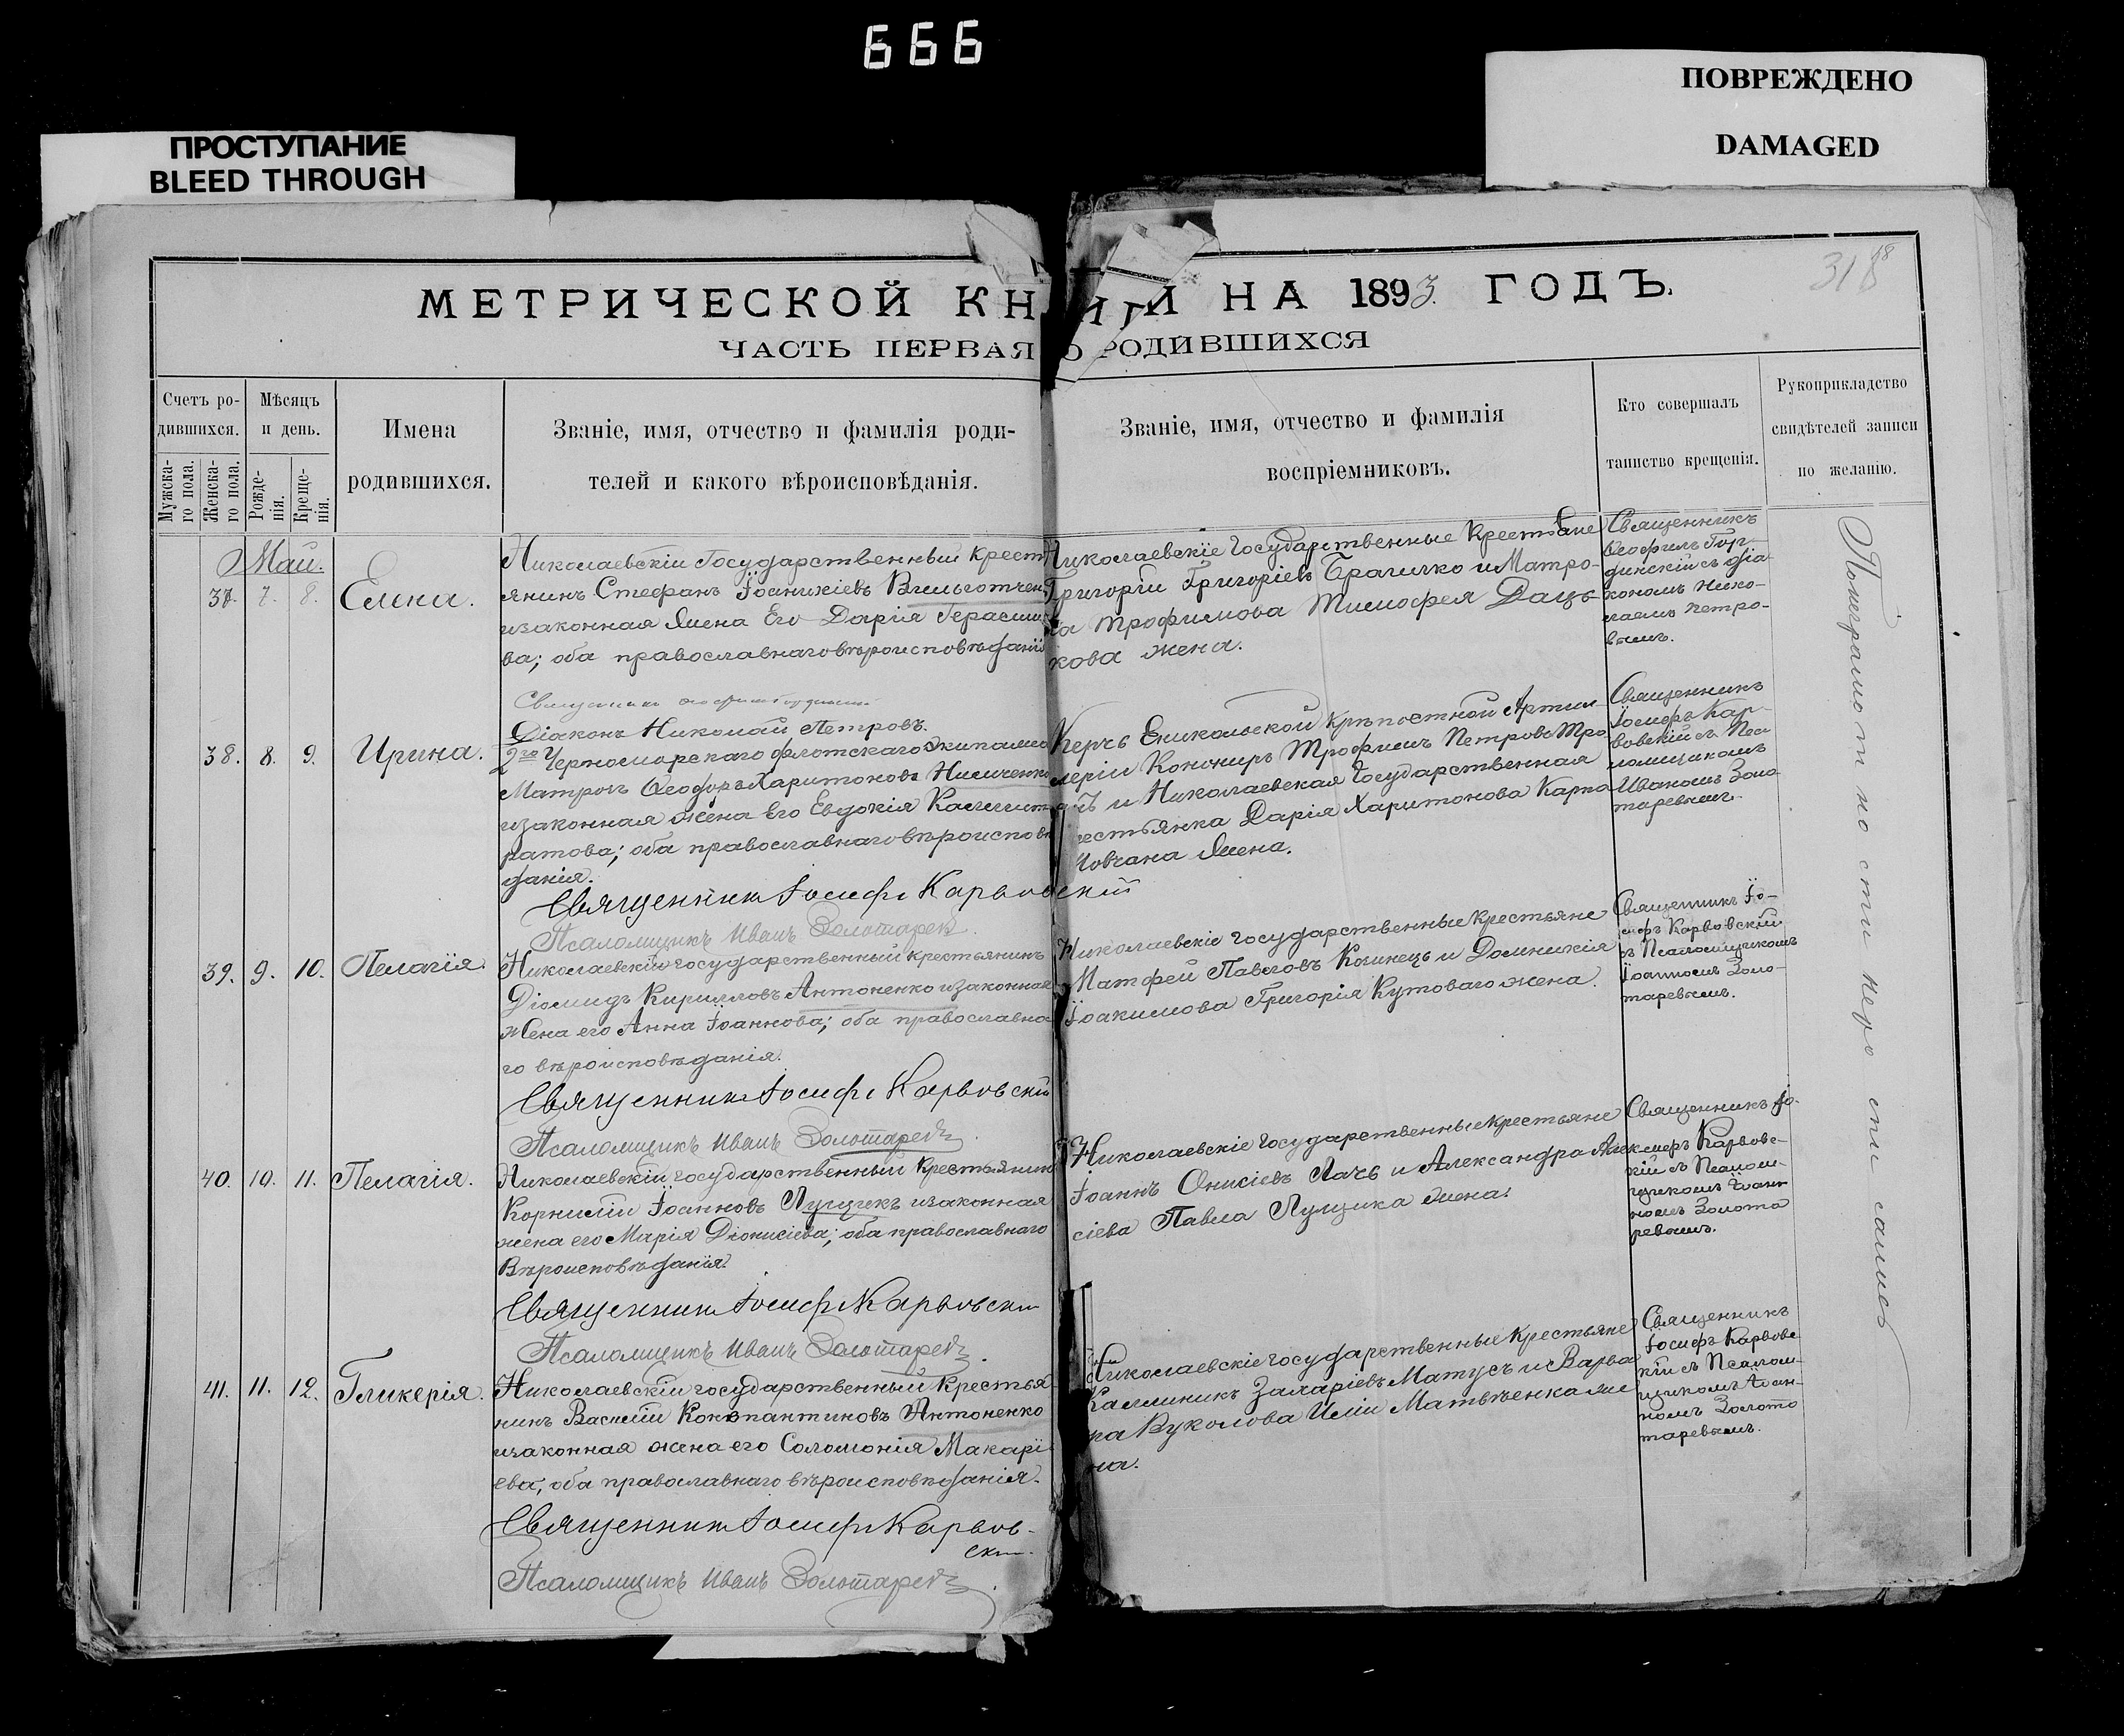 666
ПОВРЕЖДЕНО
DAMAGED
ПРОСТУПАНИЕ
BLEED THROUGH
318
МЕТРИЧЕСКОЙ КНИГИ НА 1893 ГОДЪ.
ЧАСТЬ ПЕРВАЯ О РОДИВШИХСЯ
Счетъ ро-
дившихся.
Мужска-
го пола.
Женска-
го пола.
Мѣсяцъ
и день.
Рожде-
нія.
Креще-
нія.
Имена
родившихся.
Званіе, имя, отчество и фамилія роди-
телей и какого вѣроисповѣданія.
Званіе, имя, отчество и фамилія
воспріемниковъ.
Кто совершалъ
таинство крещенія.
Рукоприкладство
свидѣтелей записи
по желанію.
Май.
37. 7. 8. Елена.
Николаевскій Государственный крест
янинъ Стефанъ Іоанникіевъ
изаконная жена Его Дарія Герасим
ва; оба православнаго вѣроисповѣданія
Священникъ
Діаконъ Николай Петровъ.
Николаевскіе Государственные Крестьяне
Григорій Григоріевъ и Матро-
на Трофимова Тимофея Даць
кова жена.
Священникъ
Ѳеофилъ Гор-
динскій съ діа-
кономъ Нико-
лаемъ Петро-
вымъ.
38. 8. 9. Ирина.
2го Черноморскаго флотскаго Экипажа
Матросъ Ѳеодоръ Харитоновъ Ниличенко
изаконная жена Его Евдокія Каллист
ратова; оба православнаго вѣроисповѣ
данія.
Священникъ Іосифъ Карвовскій
Псаломщикъ Иванъ Золотаревъ.
Керчь Еникольской крѣпостной Артил
леріи Канониръ Трофимъ Петровъ
и Николаевская Государственная
крестьянка Дарія Харитонова Карпа
Мовчана жена.
Священникъ
Іосифъ Кар-
вовскій съ Пса
ломщикомъ
Иваномъ Золо
таревымъ.
39. 9. 10. Пелагія.
Николаевскій государственный крестьянинъ
Діомидъ Кирилловъ Антоненко изаконная
жена его Анна Іоаннова; оба православна
го вѣроисповѣданія.
Священникъ Іосифъ Карвовскій
Псаломщикъ Иванъ Золотаревъ.
Николаевскіе государственные крестьяне
Матфей Павловъ Колинецъ и Домникія
Іоакимова Григорія Кутоваго жена.
Священникъ Іо-
сифъ Карвовскій
съ Псаломщикомъ
Іоанномъ Золо-
таревымъ.
40. 10. 11. Пелагія.
Николаевскій государственный крестьянинъ
Корнилій Іоанновъ Лущикъ изаконная
жена его Марія Діонисіева; оба православнаго
Вѣроисповѣданія.
Священникъ Іосифъ Карвовскій
Псаломщикъ Иванъ Золотаревъ.
Николаевскіе государственные крестьяне
Іоаннъ Онисіевъ Лачъ и Александра Алек
сіева Павла Лущика жена.
Священникъ Іо-
сифъ Карвовс-
кій съ Псалом-
щикомъ Іоан
номъ Золота
ревымъ.
41. 11. 12. Гликерія.
Николаевскій государственный крестья
нинъ Василій Константиновъ Антоненко
изаконная жена его Соломонія Макарі
ева; оба православнаго вѣроисповѣданія.
Священникъ Іосифъ Карвов-
скій.
Псаломщикъ Иванъ Золотаревъ.
Николаевскіе государственные крестьяне
Каллиникъ Захаріевъ Матусъ и Варва
ра Вуколова Иліи Матвѣенка же
на.
Священникъ
Іосифъ Карвовс
кій съ Псалом-
щикомъ Іоан-
номъ Золото
таревымъ.